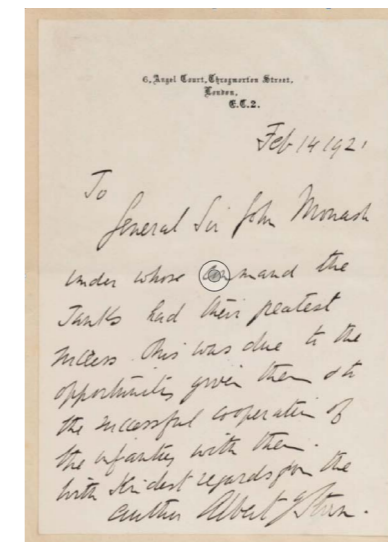 6, Angel Court, Throgmorton Street,
London,
E.C.2.
Feb 14 1921
To
General Sir John Monash
under whose command the
Tanks had their greatest
success. This was due to the
opportunities given them & to
the successful cooperation of
the infantry with them.
With kindest regards from the
author Albert G Stern.